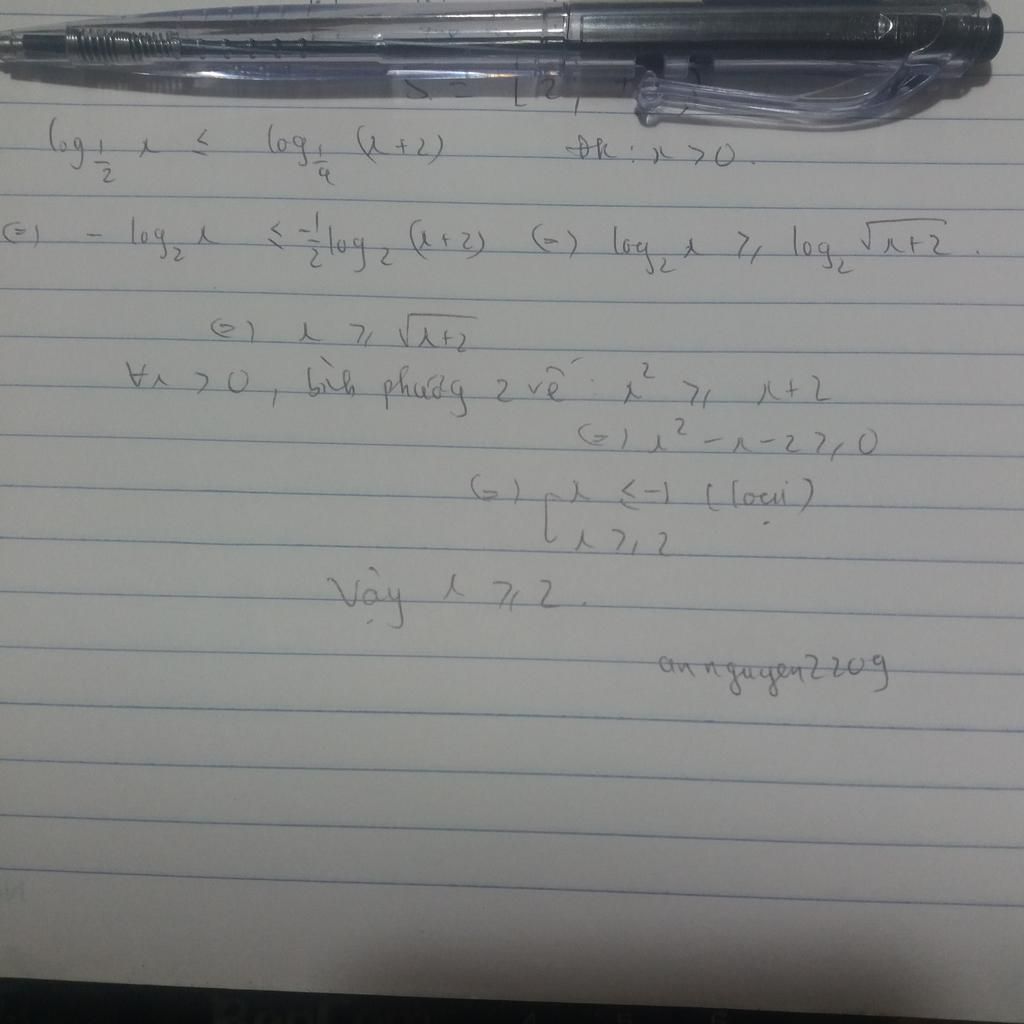 S = [2,
log_{1/2} x ≤ log_{1/4} (x+2) ĐK: x > 0.
(=) - log_2 x ≤ -1/2 log_2 (x+2) (=) log_2 x ≥ log_2 √(x+2).
(=) x ≥ √(x+2)
∀x > 0, bình phương 2 vế: x² ≥ x+2
(=) x² - x - 2 ≥ 0
(=) [ x ≤ -1 (loại)
x ≥ 2
Vậy x ≥ 2.
annguyen2209